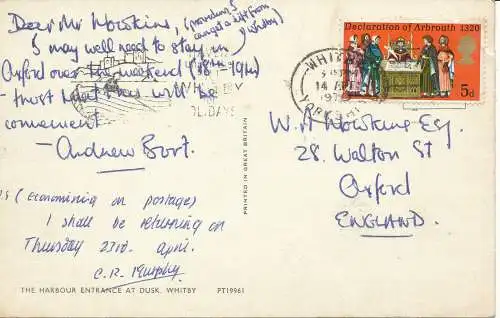 Dear Mr Howkins, (providing I
can get a lift from
Whitby)
I may well need to stay in
Oxford over the weekend (18th-19th)
- trust that this will be
convenient
- Andrew Bort.
P.S (Economising on postage)
I shall be returning on
Thursday 23rd. April.
C.R. Murphy
THE HARBOUR ENTRANCE AT DUSK. WHITBY PT19961
PRINTED IN GREAT BRITAIN
Declaration of Arbroath 1320
5d
WHITBY
14 AP
197
YORKSHI
HOLIDAYS
W. A Howkins Esq.
28. Walton St
Oxford
ENGLAND.